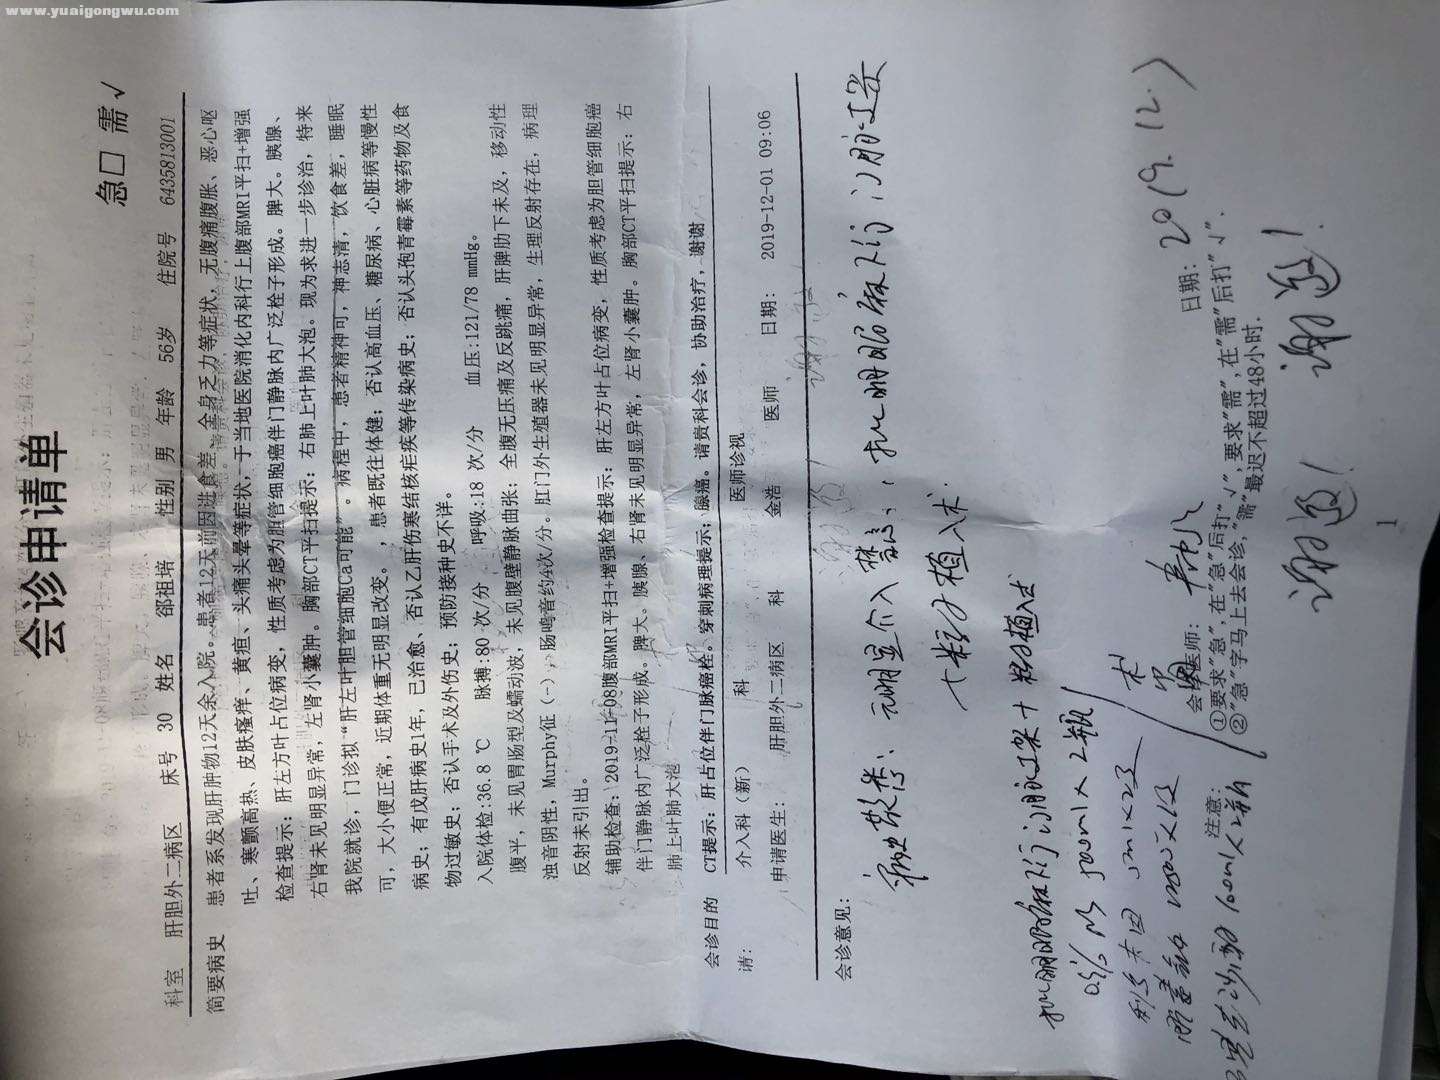 www.yuaigongwu.com
会诊申请单
急□ 需√
科室 肝胆外二病区 床号 30 姓名 郤祖培 性别 男 年龄 56岁 住院号 6435813001
简要病史 患者系发现肝肿物12天余入院。患者12天前因进食差、全身乏力等症状,无腹痛腹胀、恶心呕
吐、寒颤高热、皮肤瘙痒、黄疸、头痛头晕等症状,于当地医院消化内科行上腹部MRI平扫+增强
检查提示:肝左方叶占位病变,性质考虑为胆管细胞癌伴门静脉内广泛栓子形成。脾大。胰腺、
右肾未见明显异常,左肾小囊肿。胸部CT平扫提示:右肺上叶肺大泡。现为求进一步诊治,特来
我院就诊,门诊拟“肝左叶胆管细胞Ca可能”。病程中,患者精神可,神志清,饮食差,睡眠
可,大小便正常,近期体重无明显改变。,患者既往体健;否认高血压、糖尿病、心脏病等慢性
病史;有戊肝病史1年,已治愈、否认乙肝伤寒结核疟疾等传染病史;否认头孢青霉素等药物及食
物过敏史;否认手术及外伤史;预防接种史不详。
入院体检:36.8 ℃ 脉搏:80 次/分 呼吸:18 次/分 血压:121/78 mmHg。
腹平,未见胃肠型及蠕动波,未见腹壁静脉曲张;全腹无压痛及反跳痛,肝脾肋下未及,移动性
浊音阴性,Murphy征(-),肠鸣音约4次/分。肛门外生殖器未见明显异常,生理反射存在,病理
反射未引出。
辅助检查:2019-11-08腹部MRI平扫+增强检查提示:肝左方叶占位病变,性质考虑为胆管细胞癌
伴门静脉内广泛栓子形成。脾大。胰腺、右肾未见明显异常,左肾小囊肿。胸部CT平扫提示:右
肺上叶肺大泡
会诊目的 CT提示:肝占位伴门脉癌栓。穿刺病理提示;腺癌。请贵科会诊,协助治疗,谢谢
请: 介入科(新) 科 医师诊视
申请医生: 肝胆外二病区 科 金浩 医师 日期: 2019-12-01 09:06
会诊意见:
病史敬悉,无明显介入禁忌,拟明日局麻下行门脉支架
+粒子植入术.
拟明日局麻下行门脉支架+粒子植入术
500ml×2瓶
利多卡因 5ml×2支
100ml×2瓶
会诊医师: 日期: 2019.12.
注意: ①要求“急”,在“急”后打“√”,要求“需”,在“需”后打“√”.
②“急”字马上去会诊,“需”最迟不超过48小时.
谢邀! 谢邀!
1